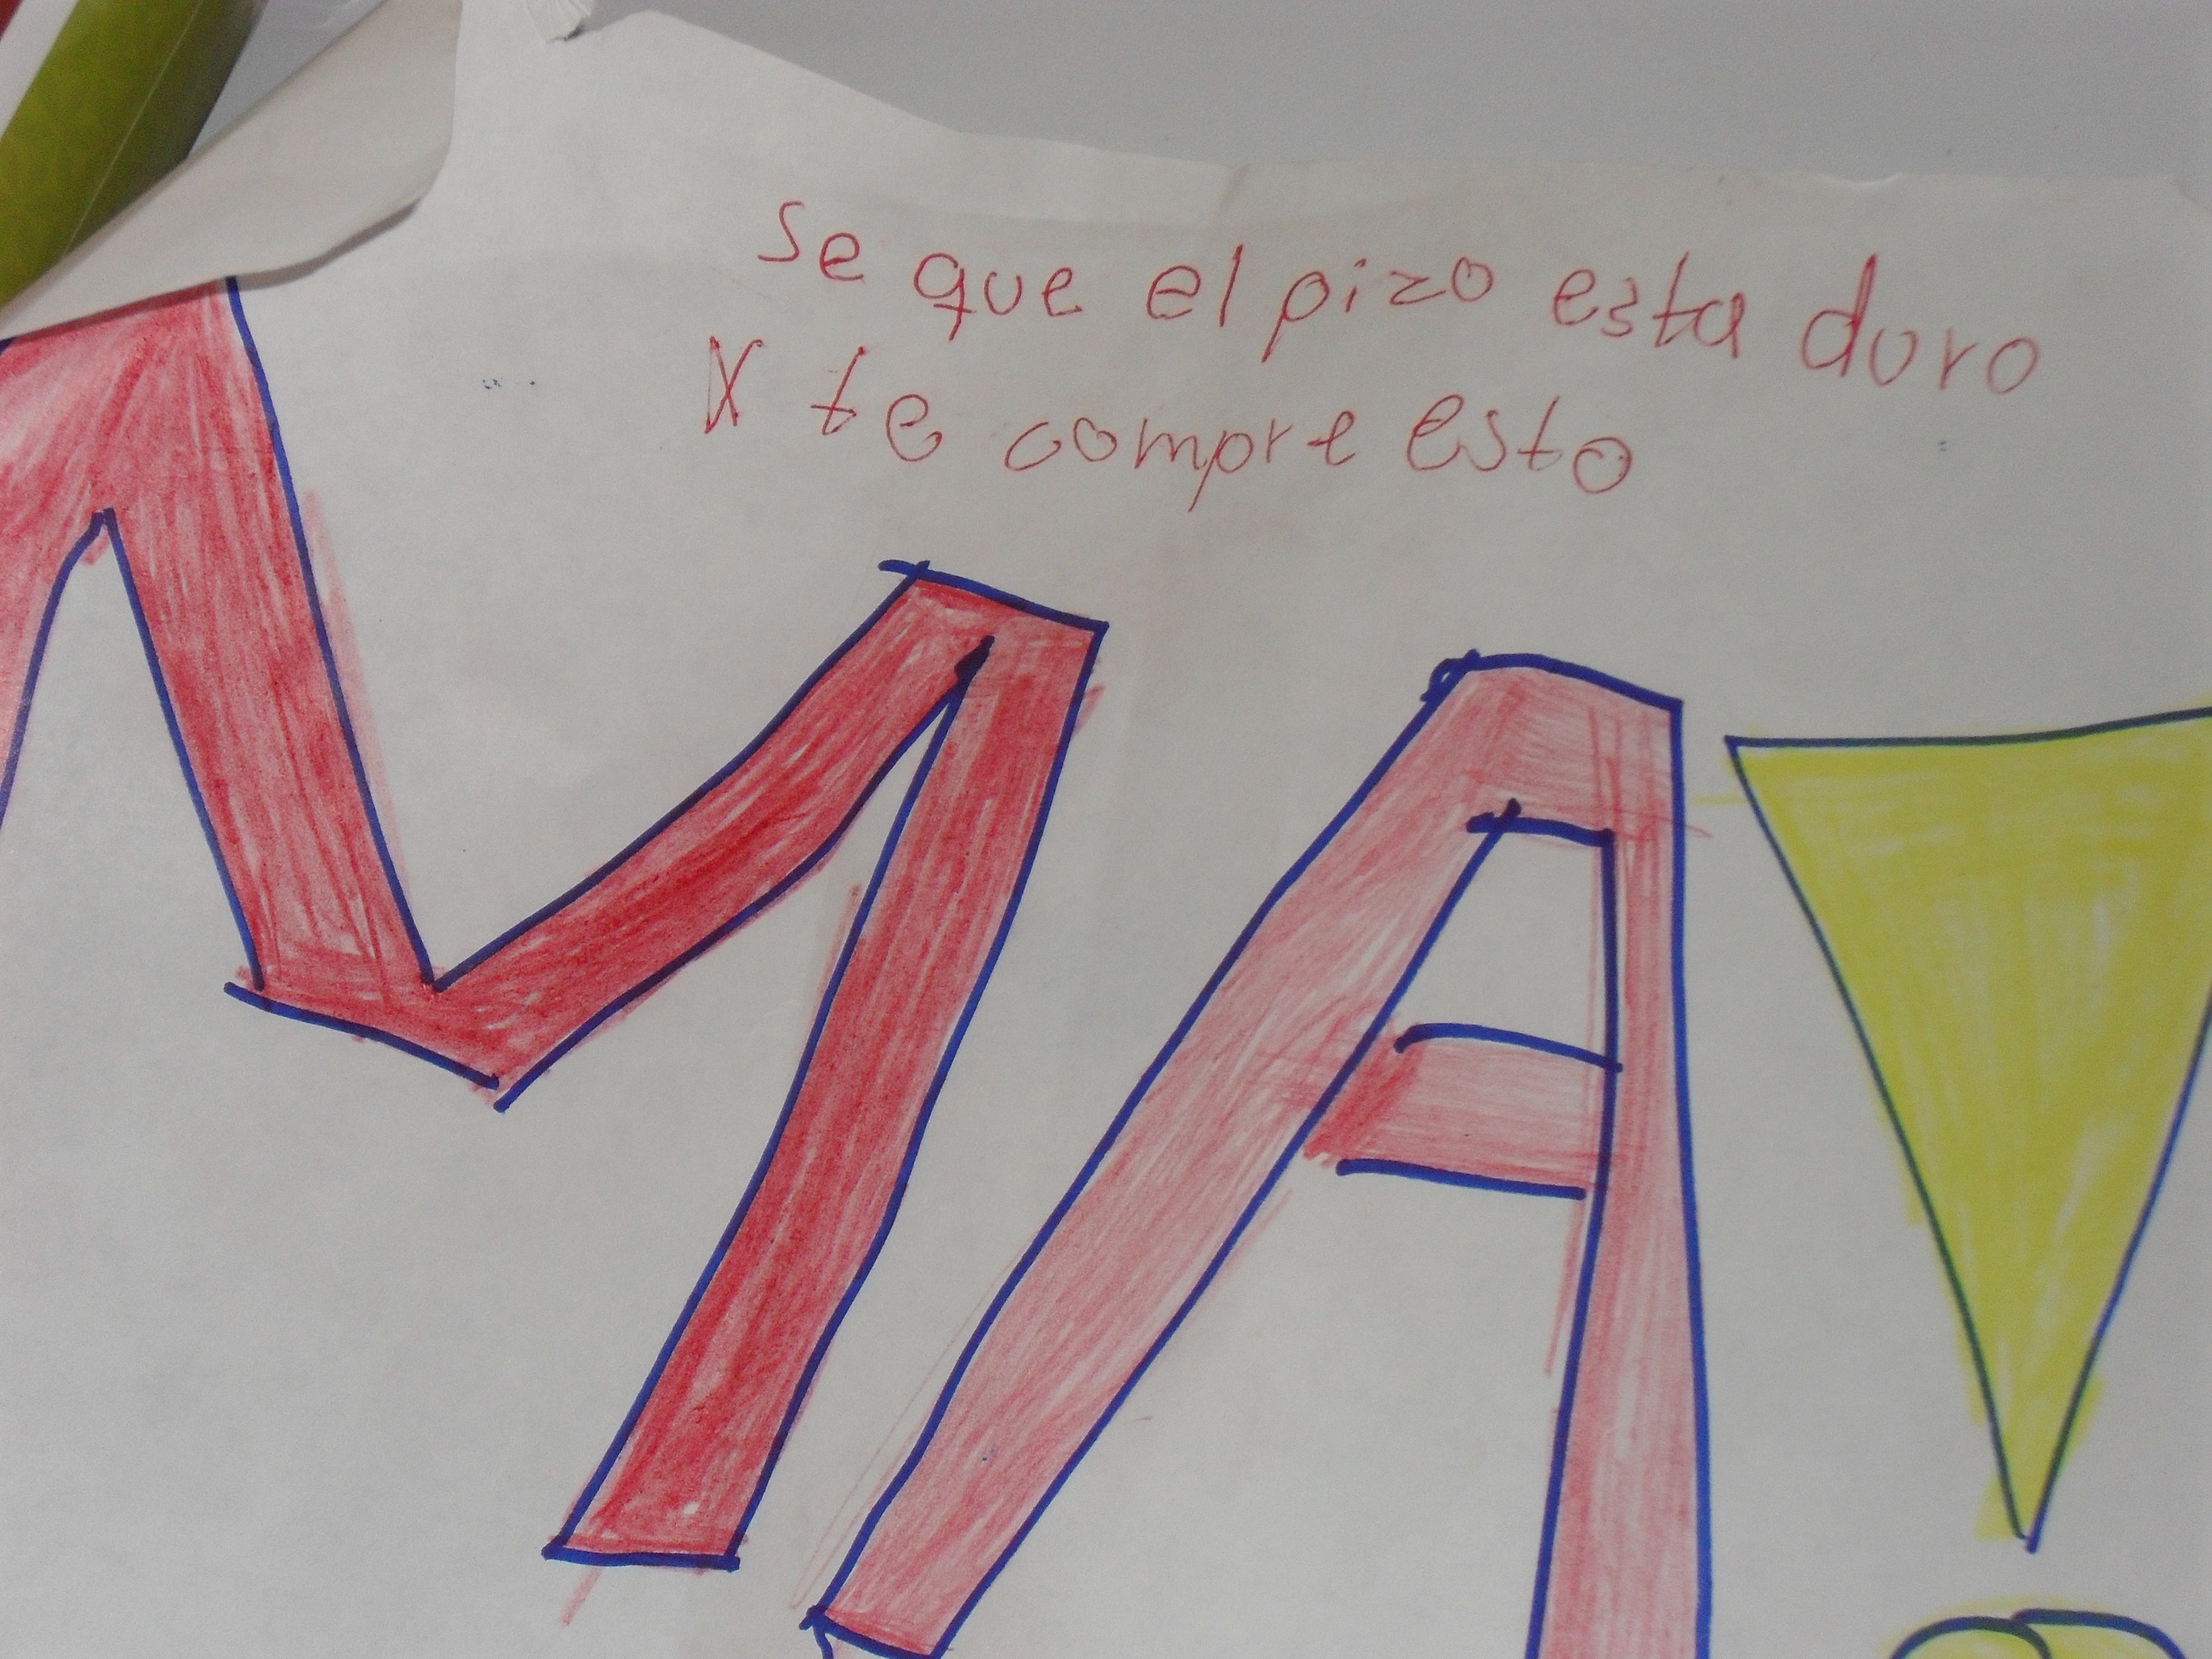 se que el pizo esta duro
X te compre esto
MA!